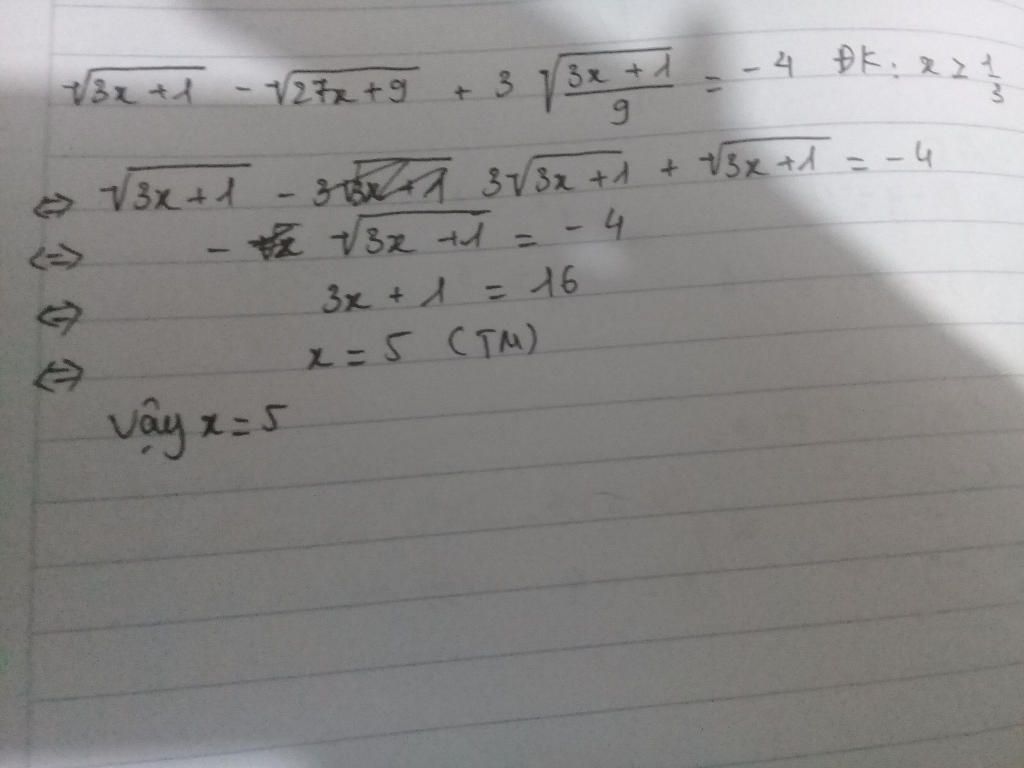 √(3x+1) - √(27x+9) + 3√((3x+1)/9) = -4 ĐK: x ≥ 1/3
⇔ √(3x+1) - 3√(3x+1) + √(3x+1) = -4
⇔ - √(3x+1) = -4
⇔ 3x + 1 = 16
⇔ x = 5 (TM)
Vậy x = 5